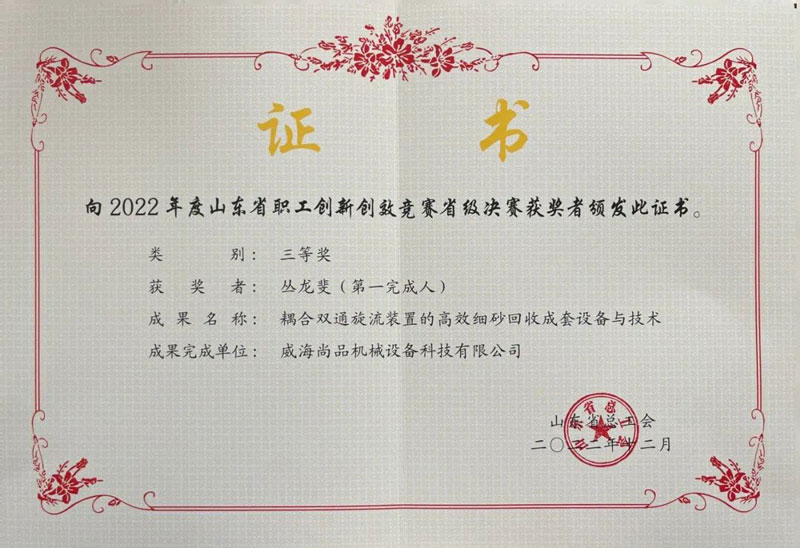 证 书
向2022年度山东省职工创新创效竞赛省级决赛获奖者颁发此证书。
类 别：三等奖
获 奖 者：丛龙斐（第一完成人）
成 果 名 称：耦合双通旋流装置的高效细砂回收成套设备与技术
成果完成单位：威海尚品机械设备科技有限公司
山东省总工会
二〇二二年十二月